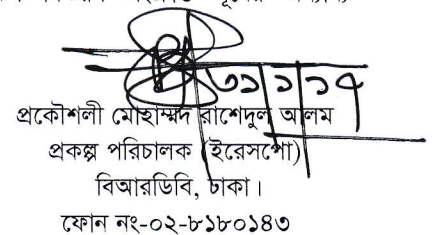 ৩১|১|১৭
প্রকৌশলী মোহাম্মদ রাশেদুল আলম
প্রকল্প পরিচালক (ইরেসপো)
বিআরডিবি, ঢাকা।
ফোন নং-০২-৮১৮০১৪৩